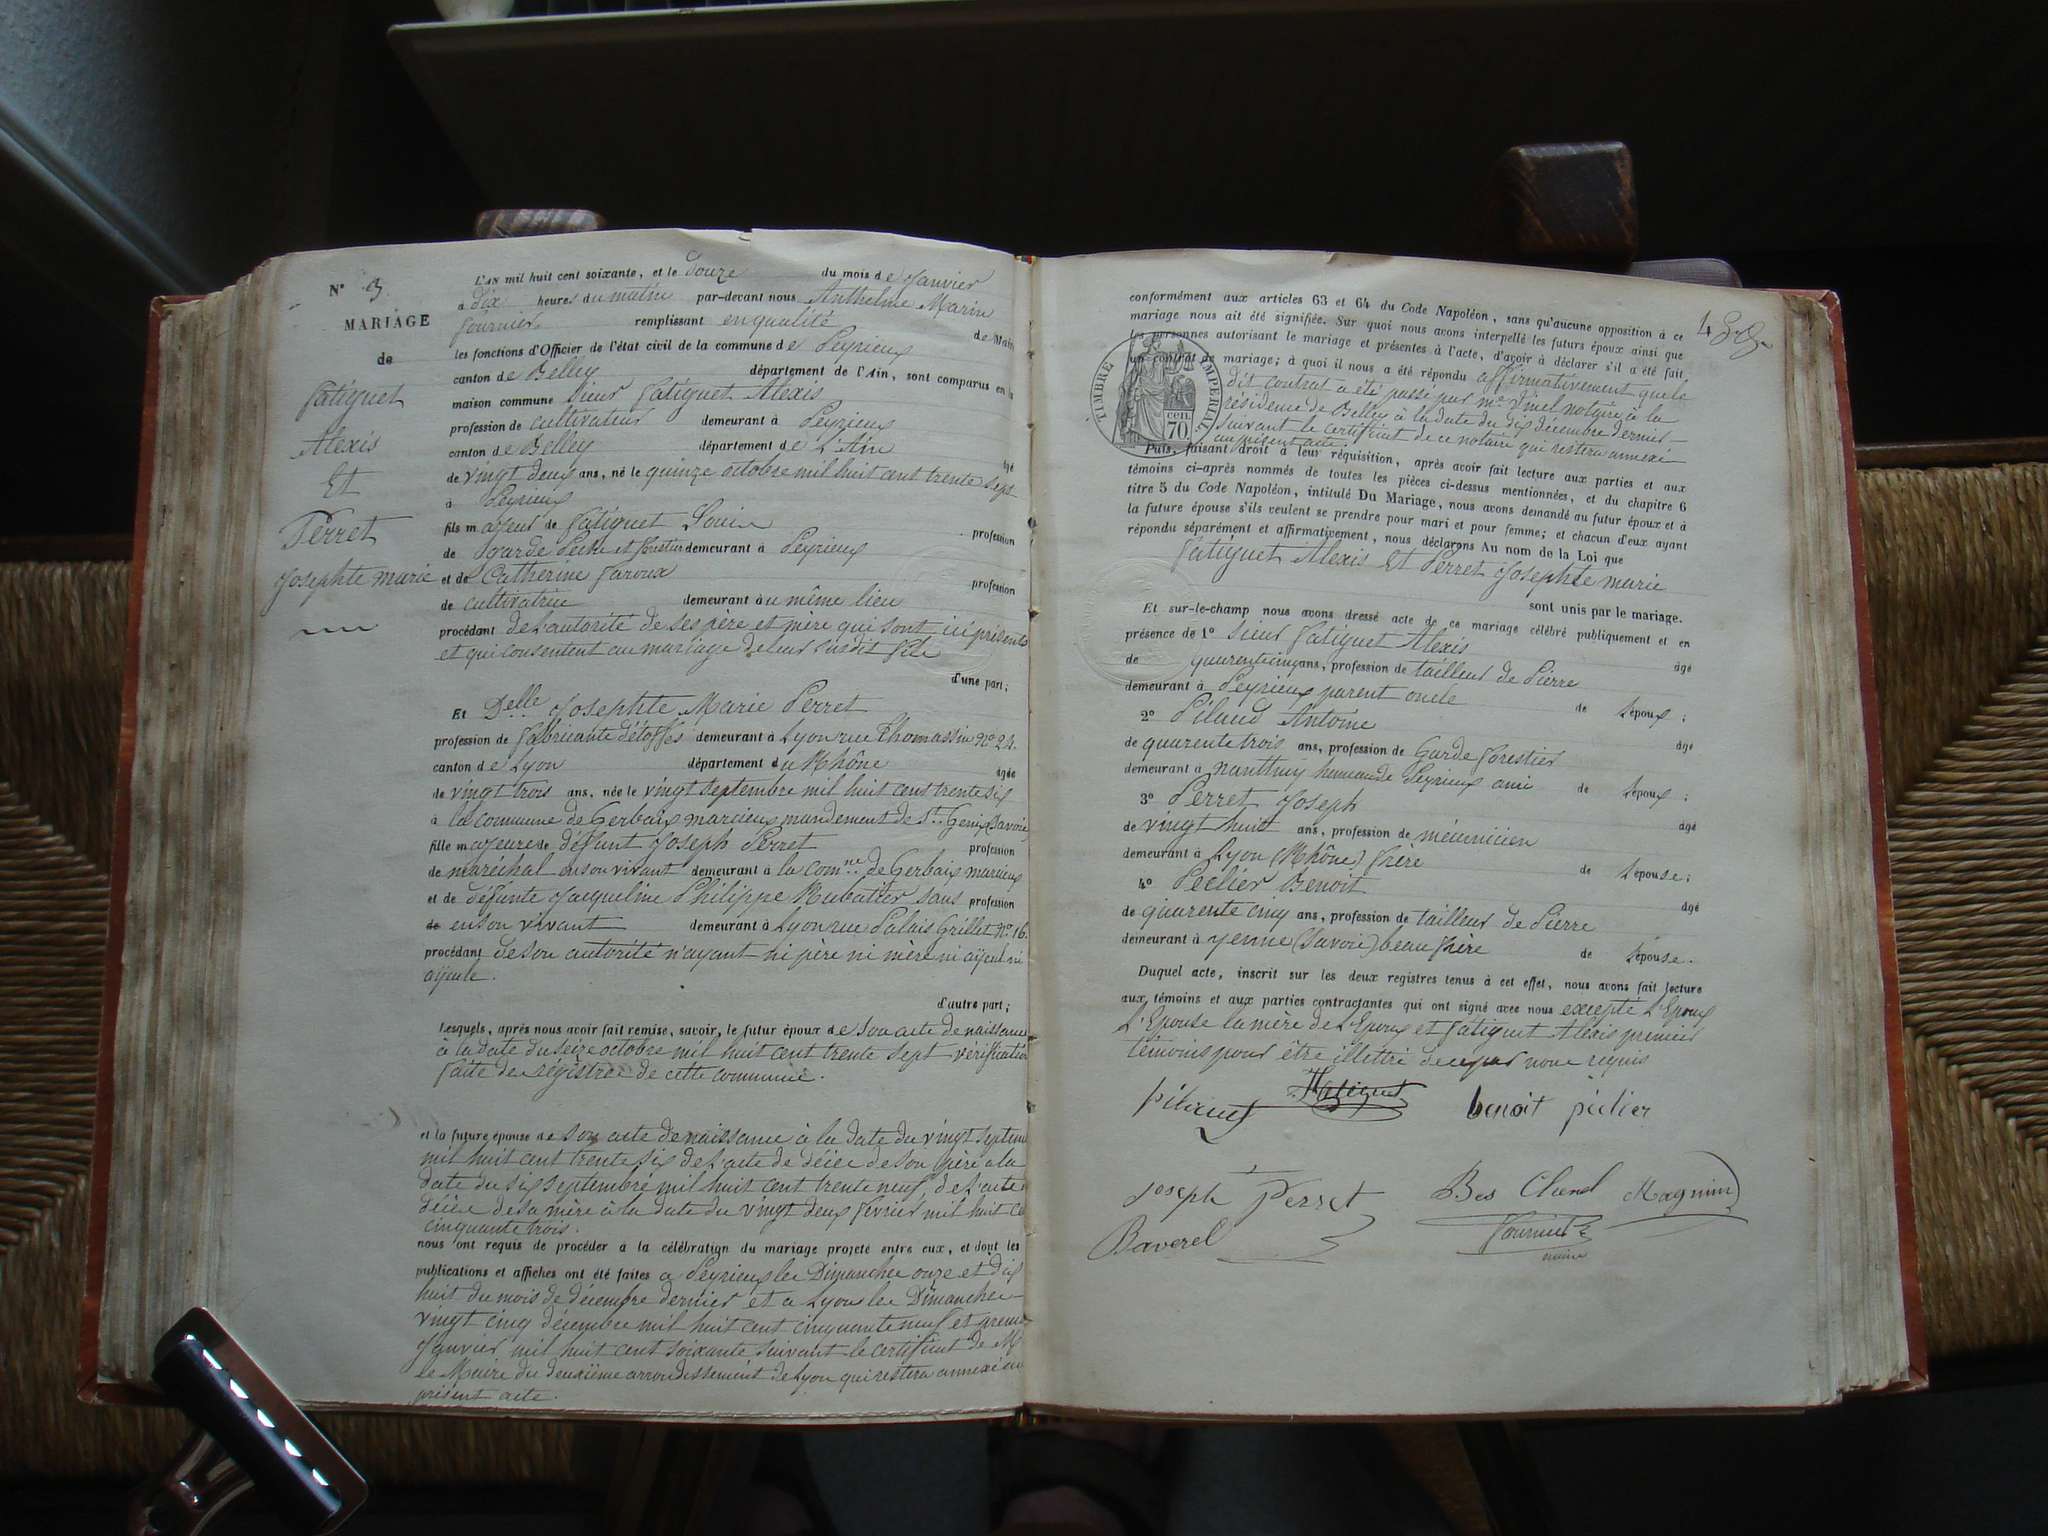 N° 3
MARIAGE
de
Fatiguet
Alexis
Et
Perret
Josephte Marie
L'AN mil huit cent soixante, et le Douze du mois de Janvier
à Dix heures du matin par-devant nous Anthelme Marin
Fournier remplissant en qualité de Maire
les fonctions d'Officier de l'état civil de la commune de Peyrieux
canton de Belley département de l'Ain, sont comparus en la
maison commune Sieur Fatiguet Alexis
profession de cultivateur demeurant à Peyrieux
canton de Belley département de L'Ain âgé
de vingt deux ans, né le quinze octobre mil huit cent trente sept
à Peyrieux
fils majeur de Fatiguet Louis profession
de Garde Pêche et forestier demeurant à Peyrieux
et de Catherine Faroux profession
de cultivatrice demeurant au même lieu
procédant de l'autorité de ses père et mère qui sont ici présents
et qui consentent au mariage de leur susdit fils
d'une part;
Et Delle Josephte Marie Perret
profession de fabricante d'étoffes demeurant à Lyon rue Thomassin N° 24.
canton de Lyon département du Rhône âgée
de vingt trois ans, née le vingt septembre mil huit cent trente six
à la commune de Gerbaix marcieux mandement de St. Genix Savoie
fille majeure de défunt Joseph Perret profession
de maréchal en son vivant demeurant à la comne de Gerbaix marcieux
et de défunte Jacqueline Philippe Rubattier sans profession
de en son vivant demeurant à Lyon rue Palais Grillet N° 16.
procédant de son autorité n'ayant ni père ni mère ni aÿeul ni
aÿeule.
d'autre part;
Lesquels, après nous avoir fait remise, savoir, le futur époux de son acte de naissance
à la date du seize octobre mil huit cent trente sept vérification
faite de registree de cette commune.
et la future épouse de son acte de naissance à la date du vingt septembre
mil huit cent trente six de l'acte de décee de son père a la
date du six septembre mil huit cent trente neuf, de l'acte
décee de sa mère à la date du vingt deux février mil huit ce
cinquante trois.
nous ont requis de procéder à la célébration du mariage projeté entre eux, et dont les
publications et affiches ont été faites a Peyrieux lee Dimanchee onze et dix
huit du mois de décembre dernier et a Lyon lee Dimanchee
vingt cinq décembre mil huit cent cinquante neuf et premier
Janvier mil huit cent soixante suivant le certificat de Mr
le Maire du deuxième arrondissement de Lyon qui restera annexé au
présent acte.
conformément aux articles 63 et 64 du Code Napoléon, sans qu'aucune opposition à ce
mariage nous ait été signifiée. Sur quoi nous avons interpellé les futurs époux ainsi que
les personnes autorisant le mariage et présentes à l'acte, d'avoir à déclarer s'il a été fait
un contrat de mariage; à quoi il nous a été répondu affirmativement que le
dit contrat a été passé par me Dinel notaire à la
résidence de Belley à la date du dix décembre dernier
suivant le certificat de ce notaire qui restera annexé
au présent acte.
TIMBRE IMPERIAL
cen.
70.
Puis, faisant droit à leur réquisition, après avoir fait lecture aux parties et aux
témoins ci-après nommés de toutes les pièces ci-dessus mentionnées, et du chapitre 6
titre 5 du Code Napoléon, intitulé Du Mariage, nous avons demandé au futur époux et à
la future épouse s'ils veulent se prendre pour mari et pour femme; et chacun d'eux ayant
répondu séparément et affirmativement, nous déclarons Au nom de la Loi que
Fatiguet Alexis Et Perret Josephte marie
sont unis par le mariage.
Et sur-le-champ nous avons dressé acte de ce mariage célébré publiquement et en
présence de 1° Sieur Fatiguet Alexis âgé
de quarente cinq ans, profession de tailleur de Pierre
demeurant à Peyrieux parent oncle de L'époux;
2° Pilaud Antoine âgé
de quarente trois ans, profession de Garde forestier
demeurant à Nanthuy hameau de Peyrieux ami de L'époux;
3° Perret Joseph âgé
de vingt huit ans, profession de mécanicien
demeurant à Lyon (Rhône) frère de L'épouse;
4° Peclier Benoit âgé
de quarente cinq ans, profession de tailleur de Pierre
demeurant à yenne (Savoie) beau frère de L'épouse.
Duquel acte, inscrit sur les deux registres tenus à cet effet, nous avons fait lecture
aux témoins et aux parties contractantes qui ont signé avec nous excepté L'Epoux
L'Epouse la mère de L'Epoux et Fatiguet Alexis premier
témoins pour être illettré de ce par noue requis
Pilaud Fatiguet benoit péclier
Joseph Perret Bes Claud Magnin
Baverel Fournier
maire